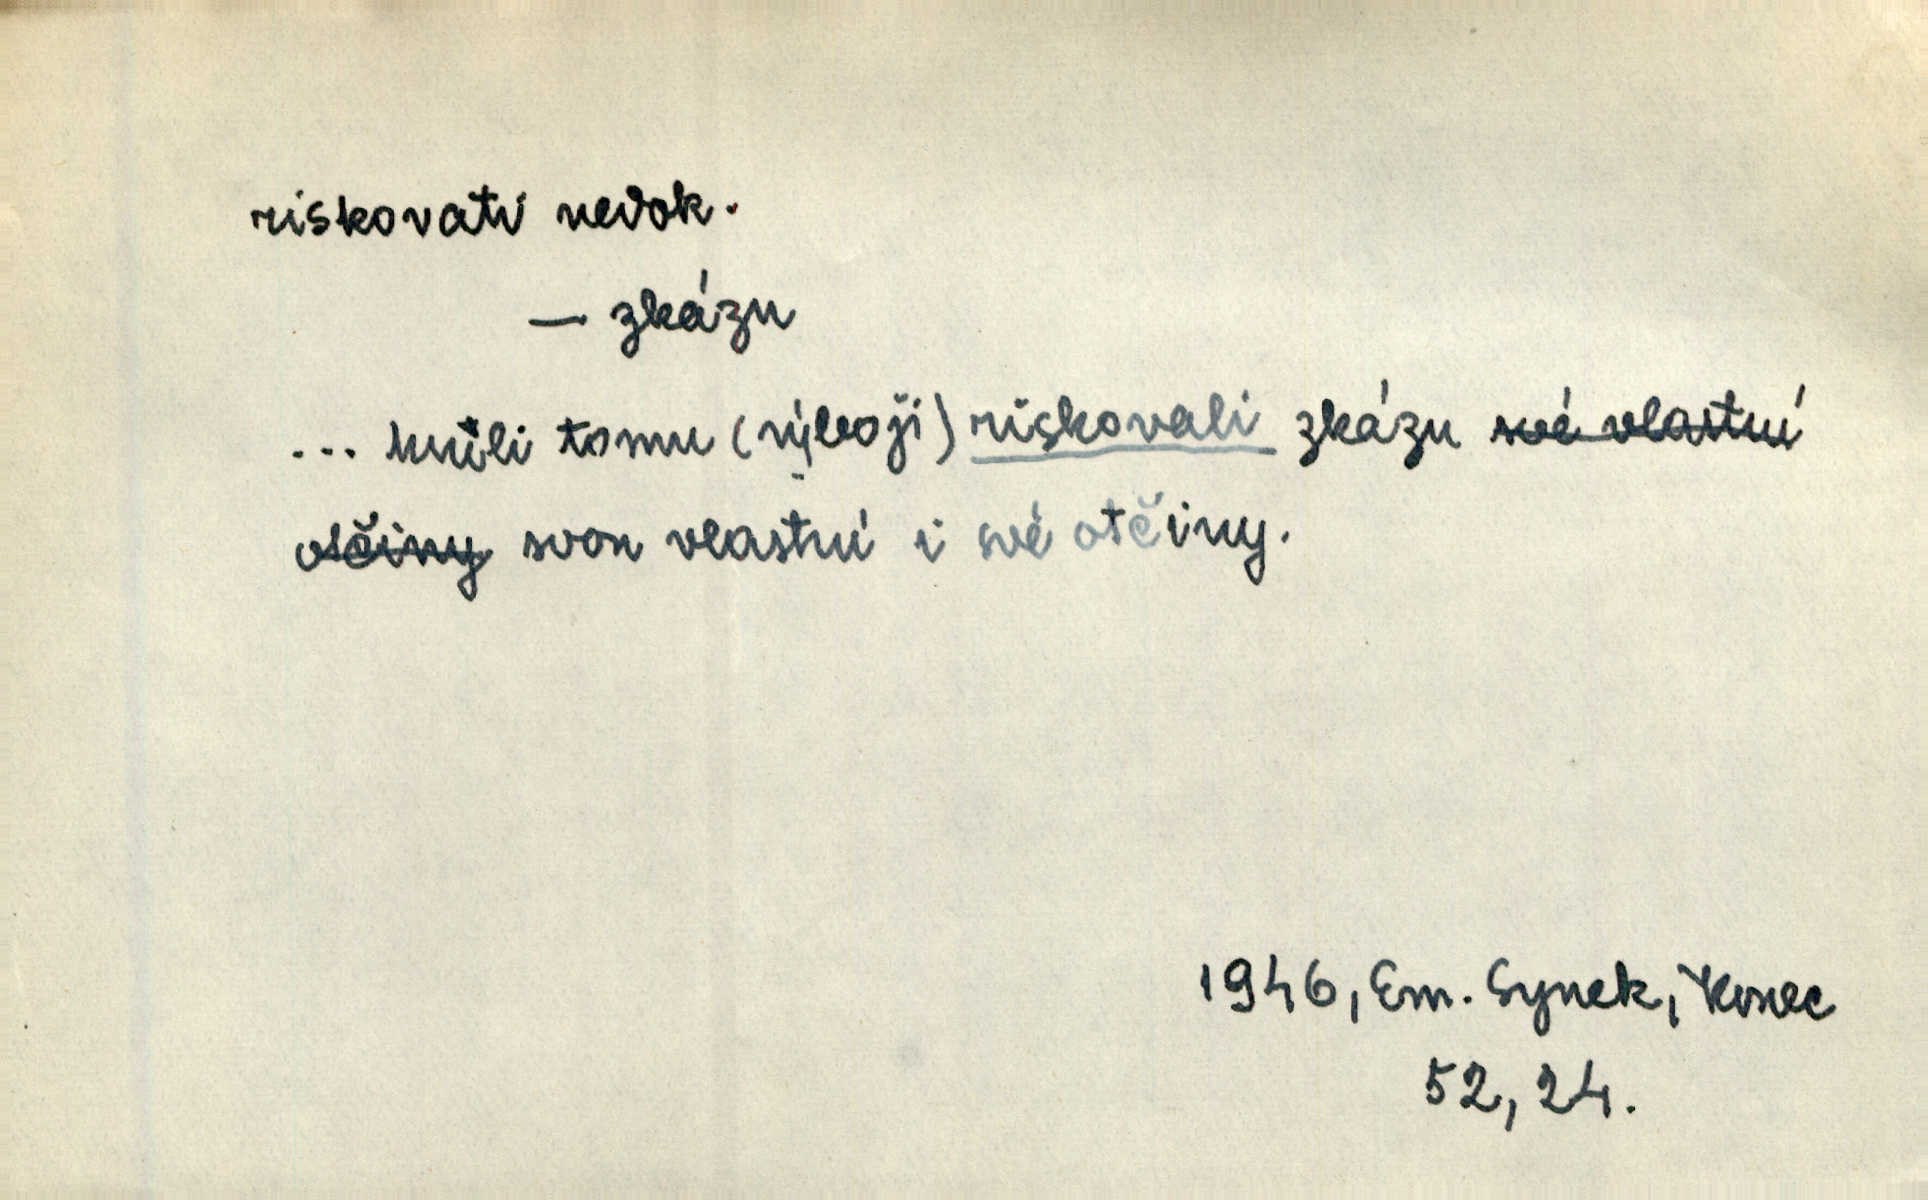 riskovati nedok.
— zkázu
... kvůli tomu (výboji) riskovali zkázu své vlastní
otčiny svou vlastní i své otčiny.
1946, Em. Synek, Konec
52, 24.